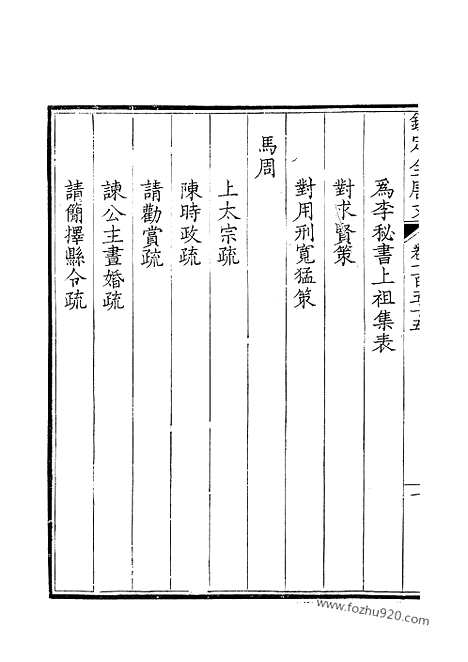 欽定全唐文 卷一百五十五 一
爲李秘書上祖集表
對求賢策
對用刑寬猛策
馬周
上太宗疏
陳時政疏
請勸賞疏
諫公主晝婚疏
請簡擇縣令疏
www.fozhu920.com